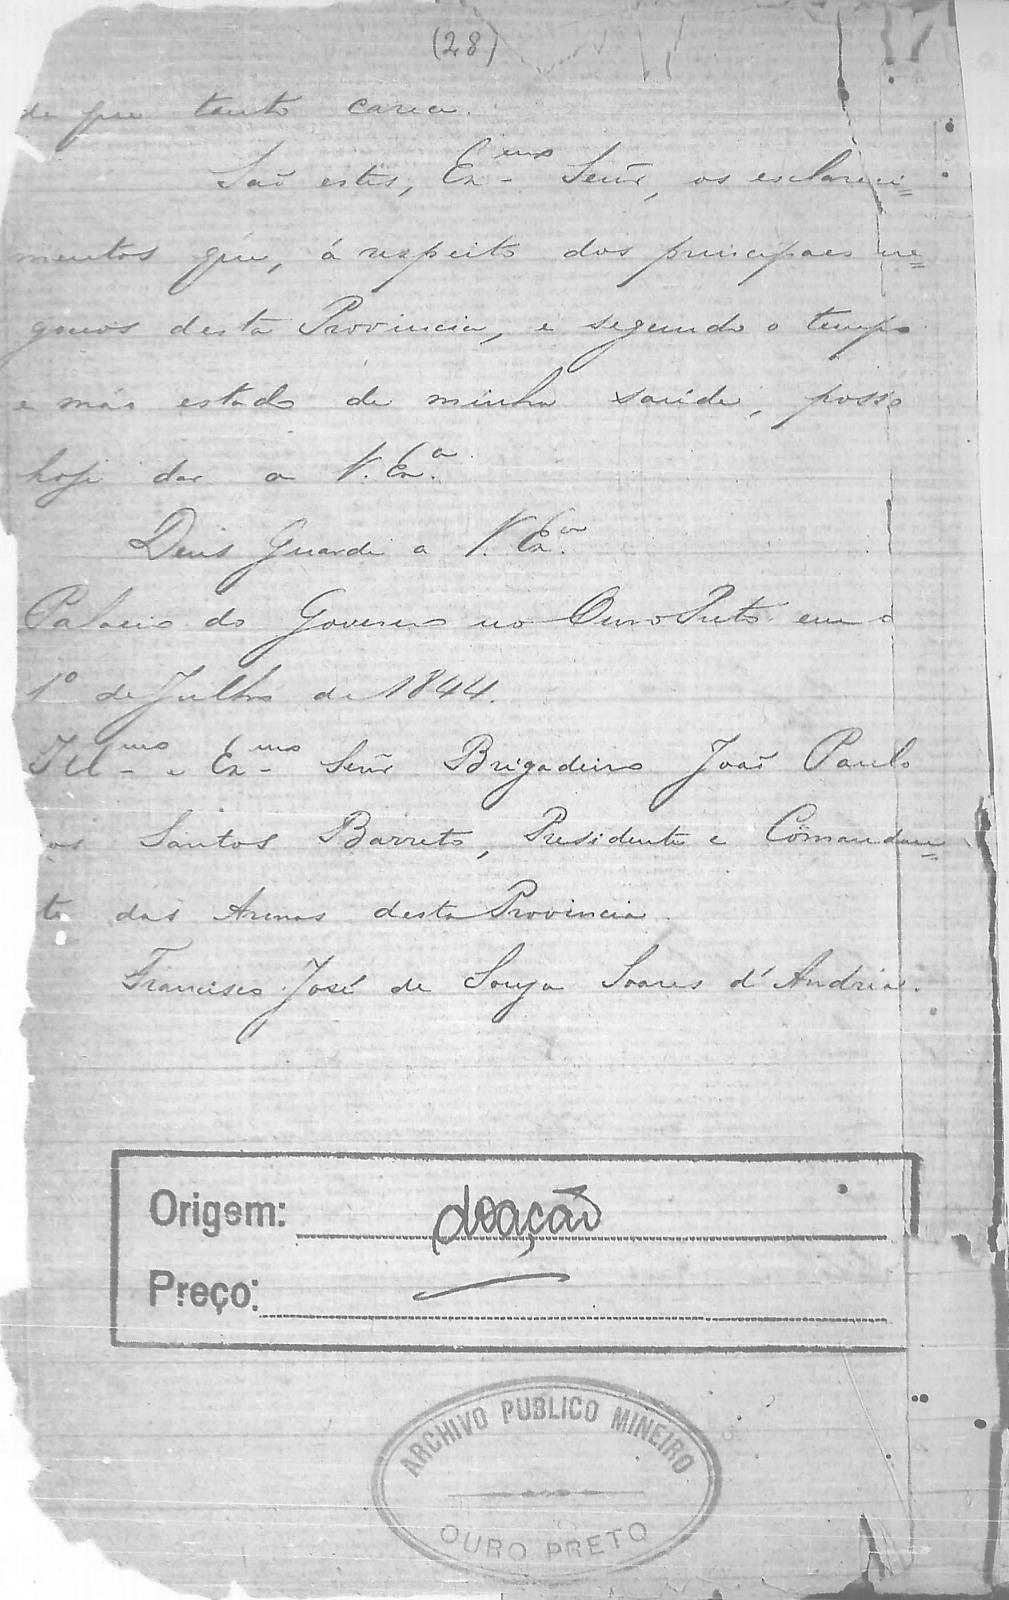 (28)
de que tanto carece.
São estes, Ex.mo Senr, os esclareci=
mentos que, á respeito dos principaes ne=
gocios desta Provincia, e segundo o tempo
e máo estado de minha saúde, posso
hoje dar a V. Ex.a
Deus Guarde a V. Ex.a
Palacio do Governo no Ouro Preto em o
1º de Julho de 1844.
Ill.mo e Ex.mo Senr Brigadeiro João Paulo
os Santos Barreto, Presidente e Comandan=
te das Armas desta Provincia.
Francisco José de Souza Soares d'Andréa.
Origem: doação
Preço: —
ARCHIVO PUBLICO MINEIRO
OURO PRETO